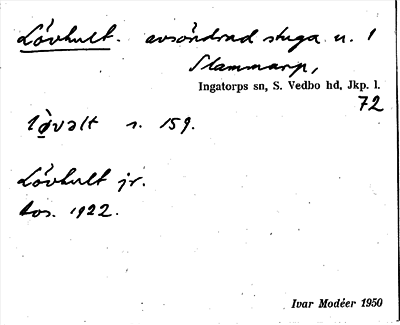 Lövhult. avsöndrad stuga u. 1
Slammarp,
Ingatorps sn, S. Vedbo hd, Jkp. l.
72
lø̀vəlt s. 159.
Lövhult jr.
tos. 1922.
Ivar Modéer 1950